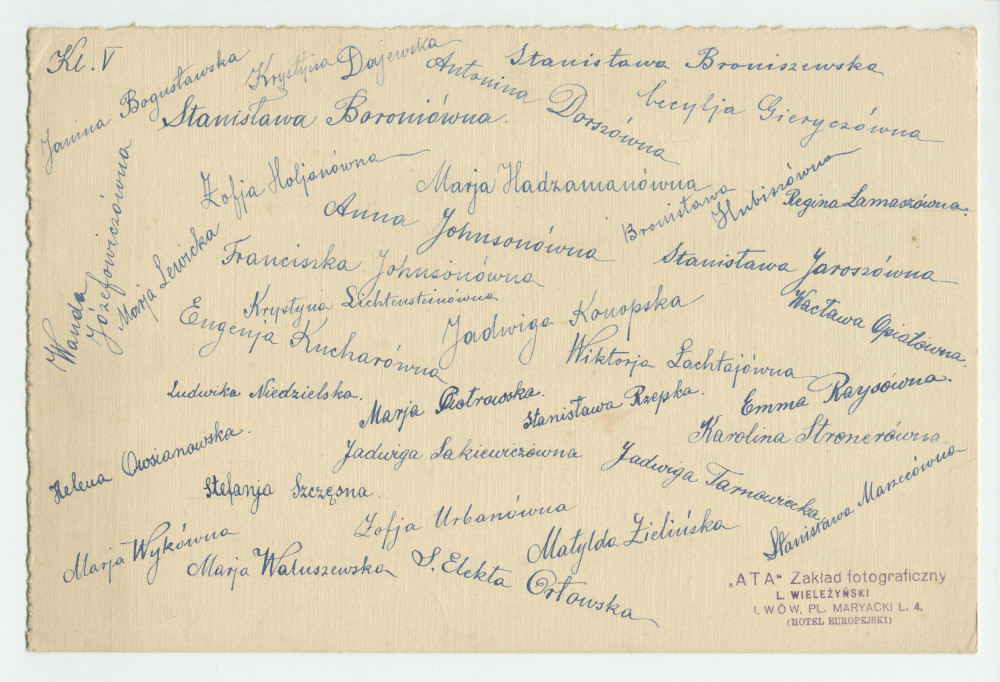 Kl. V
Janina Bogusławska
Krystyna Dajewska
Stanisława Broniszewska
Antonina Dorszówna
Cecylja Gieryczówna
Stanisława Boroniówna.
Zofja Holjanówna
Marja Hadzamanówna
Bronisława Hubiszówna
Regina Łamaszówna.
Wanda Józefowiczówna
Marja Lewicka
Anna Johnsonówna
Franciszka Johnsonówna
Stanisława Jaroszówna
Krystyna Lichtensteinówna
Wacława Opiatówna.
Eugenja Kucharówna
Jadwiga Konopska
Wiktorja Łachtajówna
Ludwika Niedzielska.
Marja Piotrowska.
Stanisława Rzepka.
Emma Raysówna.
Helena Owsianowska.
Jadwiga Sakiewiczówna
Karolina Stronerówna
Stefanja Szczęsna.
Jadwiga Tarnawiecka
Stanisława Marzecówna
Zofja Urbanówna
Marja Wykówna
Marja Waluszewska
Matylda Zielińska
S. Elekta Orłowska
„ATA" Zakład fotograficzny
L. WIELEŻYŃSKI
LWÓW, PL. MARYACKI L. 4.
(HOTEL EUROPEJSKI)